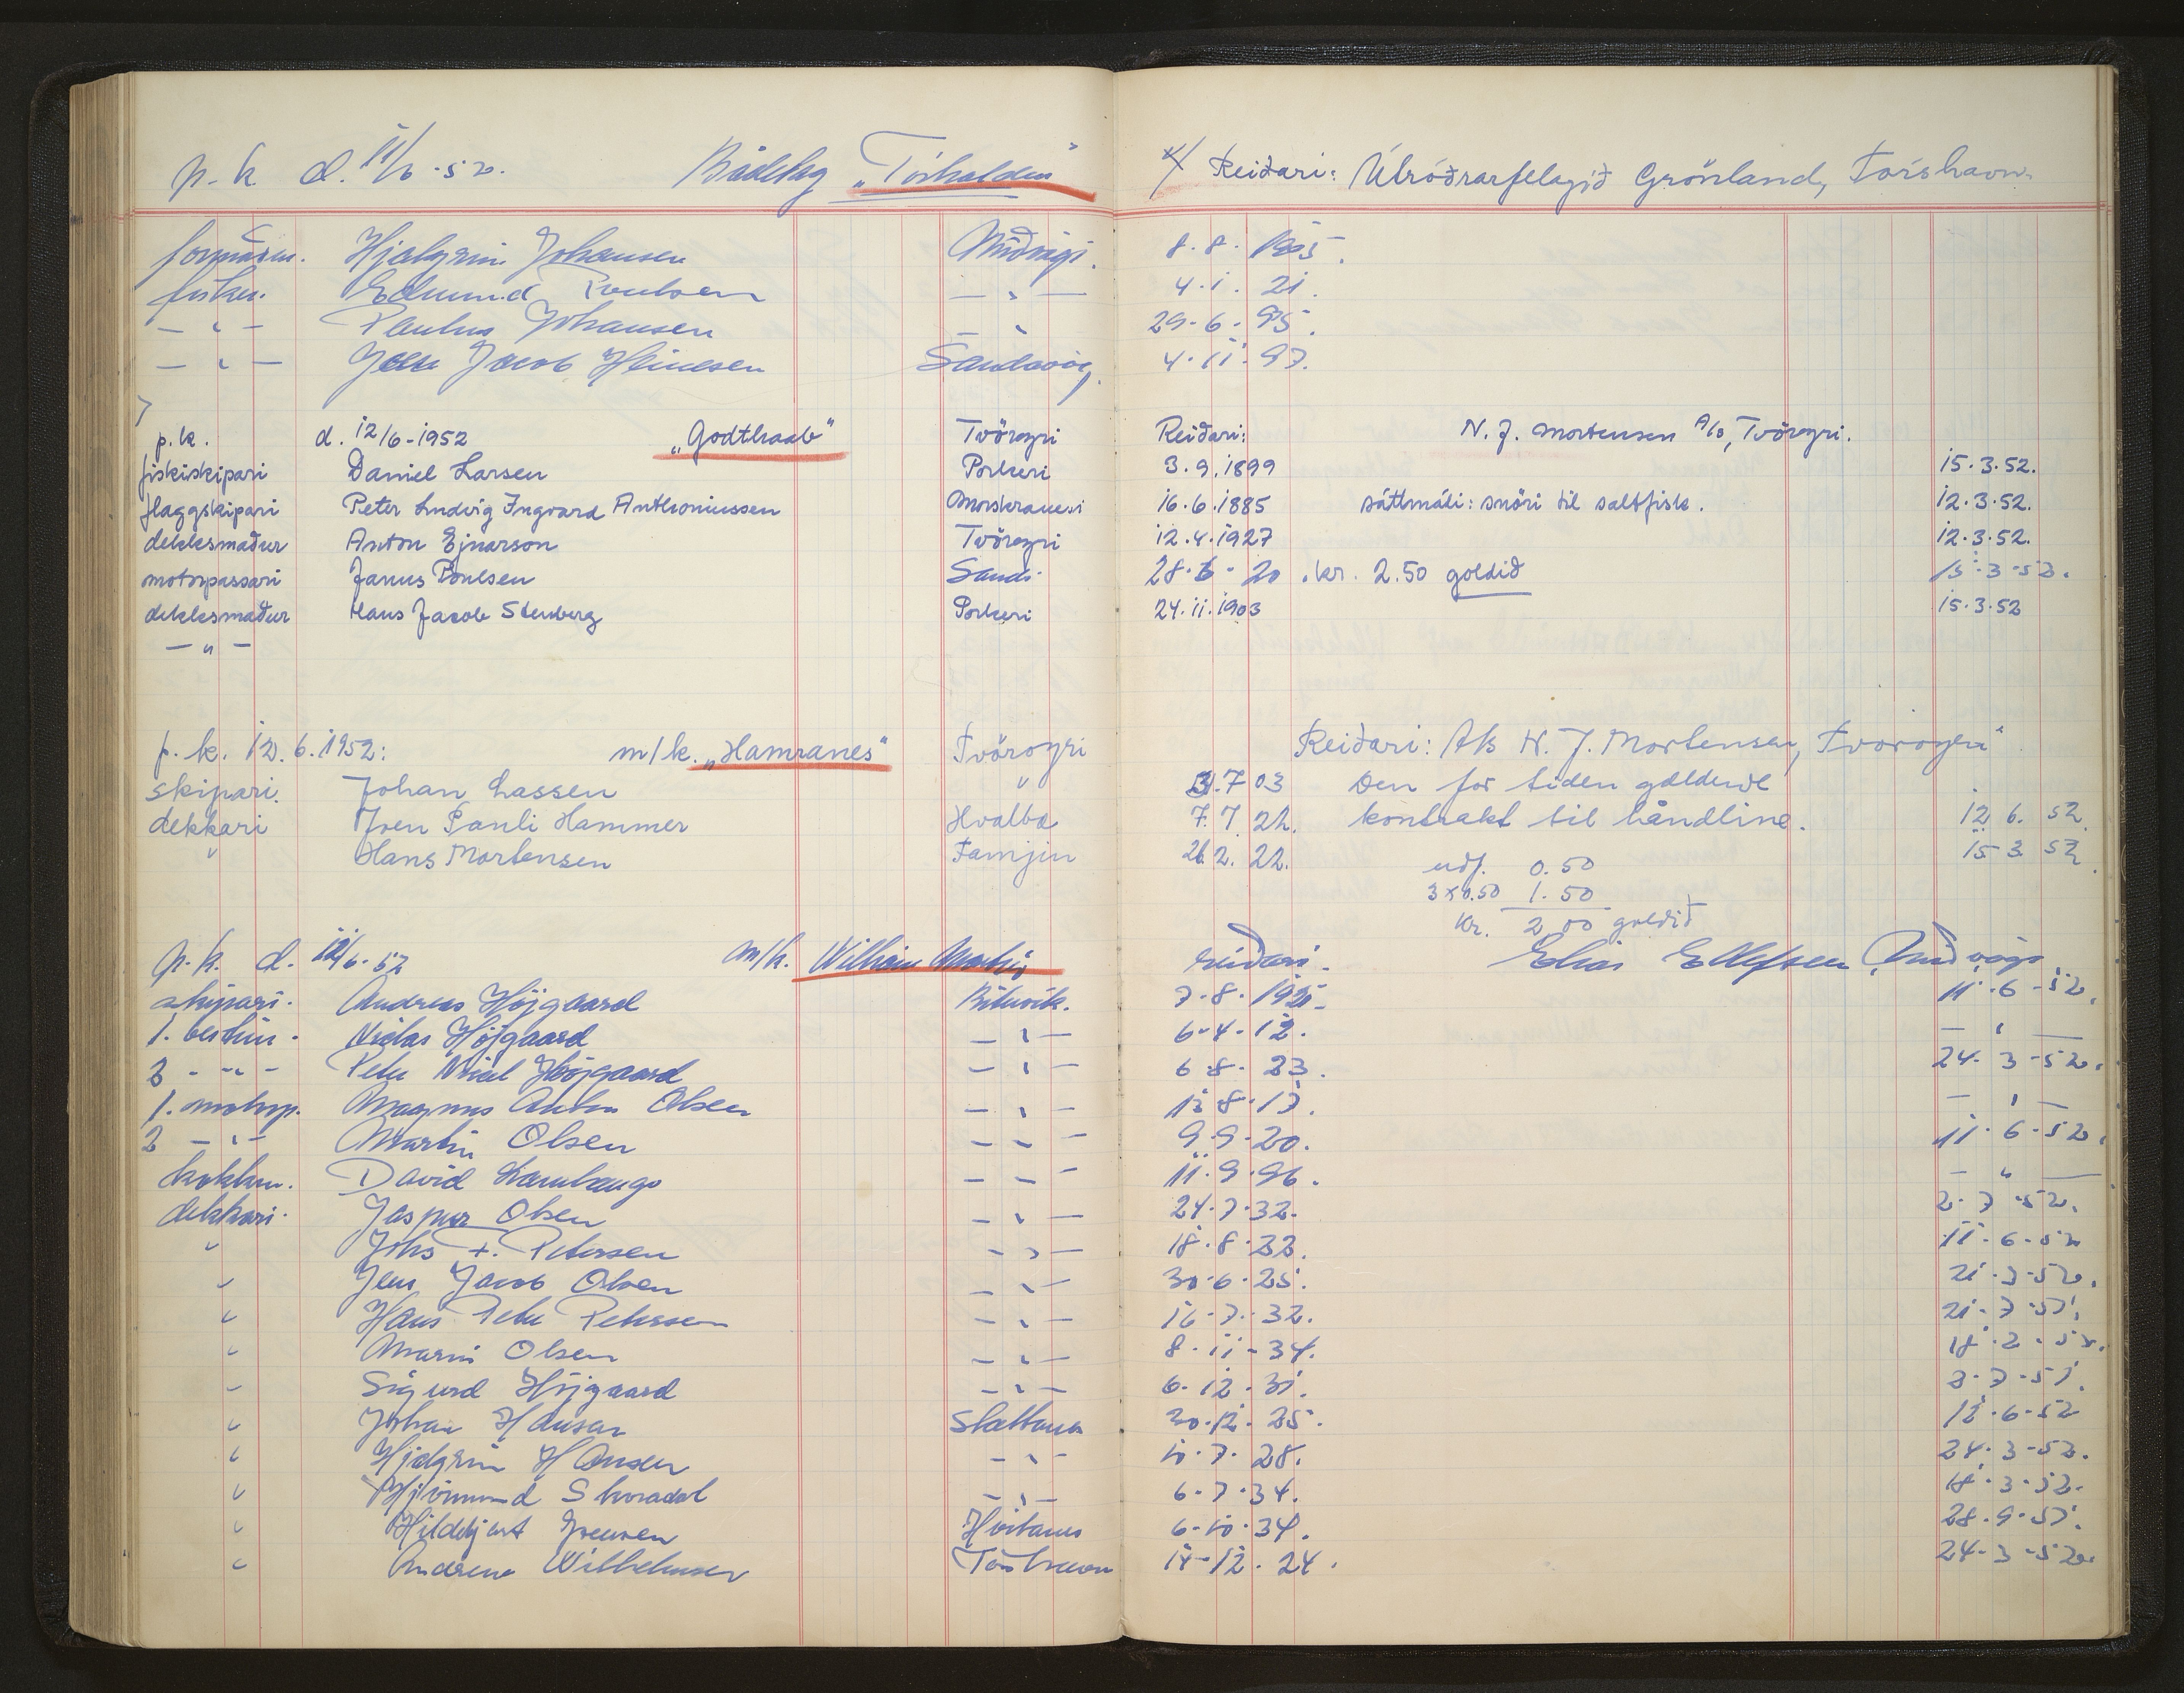 p.k. d. 11/6-52. Bådelag „Tórhaldur" Reiðari: Útróðrarfelagið Grönland, Tórshavn.
formaður. Hjalgrim Johansen Miðvági. 8.8. 1905.
fiskim. Edmund Poulsen — " — 4.1. 21.
— " — Paulus Johansen — " 29.6.95.
— " — Jens Jacob Heinesen Sandavág. 4.11.97.
p.k. d. 12/6-1952 „Godthaab" Tvöroyri Reiðari: N. J. Mortensen A/S, Tvöroyri.
fiskiskipari Daniel Larsen Porkeri 3.9.1899 15.3.52.
flaggskipari Peter Ludvig Ingvard Anthoniussen Morskranesi 16.6.1885 sáttmáli: snöri til saltfisk. 12.3.52.
dekksmaður Anton Ejnarson Tvöroyri 12.4.1927 12.3.52.
motorpassari Janus Poulsen Sandi 28.6-20 .kr. 2.50 goldið 15-3-52.
dekksmaður Hans Jacob Stenberg Porkeri 24.11.1903 15.3.52
— " —
p.k. 12.6.1952: m/k. „Hamranes" Tvöroyri Reiðari: A/s N. J. Mortensen, Tvöroyri
skipari. Johan Lassen " 3.7 03 Den for tiden gældende
dekkari Jven Pauli Hammer Hvalba 7.7.22. kontrakt til håndline. 12 6. 52.
" Hans Mortensen Famjin 26.2.22. 15 3 52.
udf. 0.50
3x0.50 1.50
Kr. 2,00 goldið
p.k. d. 12/6-52 m/k. William Martin reiðari. Elias Ellefsen, Miðvági.
skipari. Andreas Höjgaard Bituvik. 7.8.1921- 11.6-52.
1. bestim. Niclas Höjgaard — " — 6-4-12. — " —
2 - " - Peter Niclas Höjgaard — " — 6.8.23. 24.3-52.
1. motorp. Magnus Anton Olsen — " — 12.8.17. — " —
2 — " — Martin Olsen — " — 9.9.20. 11.6-52.
kokkur. David Kambango — " — 11.9.96. — " —
dekkari. Jaspur Olsen — " — 24.7.32. 2.7-52.
" Johs F. Petersen — " — 18.8.33. 11.6-52
" Jens Jacob Olsen — " — 30.6.25. 21.3-52.
" Hans Peter Petersen — " — 16.7.32. 21.7-51.
" Marni Olsen — " — 8.11-34. 18.2-52.
" Sigurd Höjgaard — " — 6-12.31. 3.7-51.
" Johan Hansen Slættanes 30.12.25. 12.6-52
" Hjalgrim Hansen — " — 10.7.28. 24.3-52.
" Hjörmund Skoradal — " — 6.7.34. 18.3-52.
" Hildibjart Joensen Höitanes 6-10.34. 28.9-51.
" Andrew Wilhelmsen Tórshavn 14-12.24. 24-3-52.